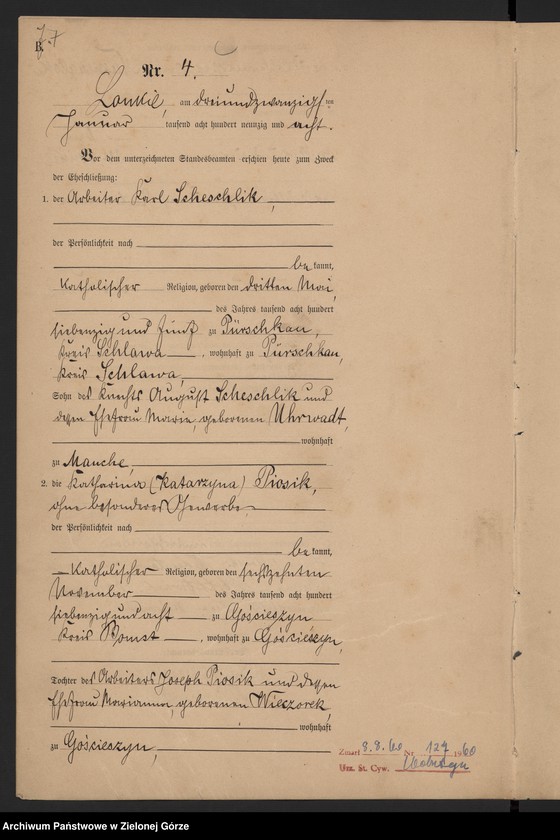 B.
Nr. 4.
am dreiundzwanzigsten
Januar tausend acht hundert neunzig und acht.
Vor dem unterzeichneten Standesbeamten erschien heute zum Zweck
der Eheschließung:
1. der Arbeiter Karl Scheschlik,
der Persönlichkeit nach
be kannt,
Katholischer Religion, geboren den dritten Mai,
des Jahres tausend acht hundert
siebenzig und fünf zu Pürschkau,
Kreis Schlawa, wohnhaft zu Pürschkau,
Kreis Schlawa,
Sohn des Knechts August Scheschlik und
dessen Ehefrau Marie, geborenen Uhrwadt,
wohnhaft
zu Mauche,
2. die Katharina (Katarzyna) Piosik,
ohne besonderes Gewerbe
der Persönlichkeit nach
be kannt,
Katholischer Religion, geboren den sechszehnten
November des Jahres tausend acht hundert
siebenzig und acht zu Gościeszyn
Kreis Bomst, wohnhaft zu Gościeszyn,
Tochter des Arbeiters Joseph Piosik und dessen
Ehefrau Marianna, geborenen Wieczorek,
wohnhaft
zu Gościeszyn,
Zmarł 8.8.60 Nr. 124 1960
Urz. St. Cyw.
Archiwum Państwowe w Zielonej Górze